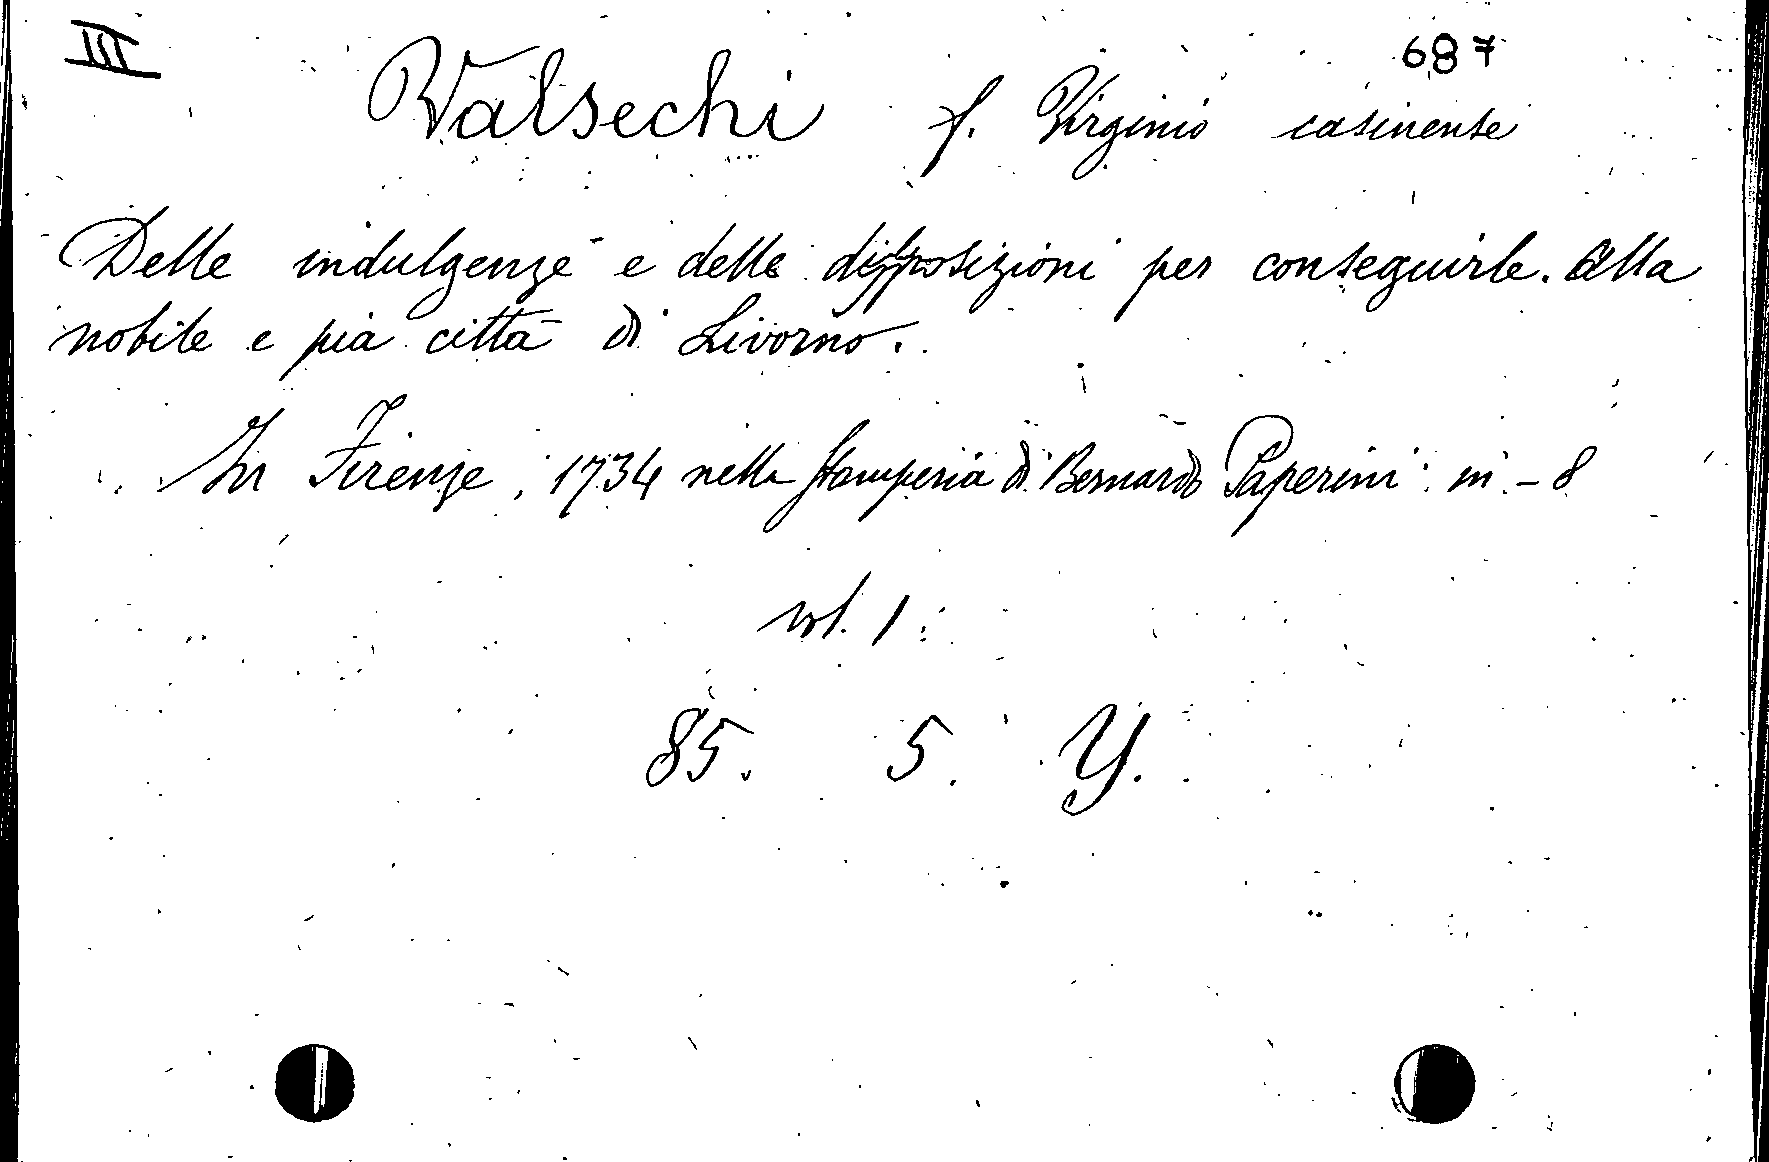 III
687
Valsechi f. Virginio casinense
Delle indulgenze e delle disposizioni per conseguirle. Alla
nobile e pia città di Livorno.
In Firenze, 1734 nella Stamperia di Bernardo Paperini in-8
vol. 1
85. 5. Y.